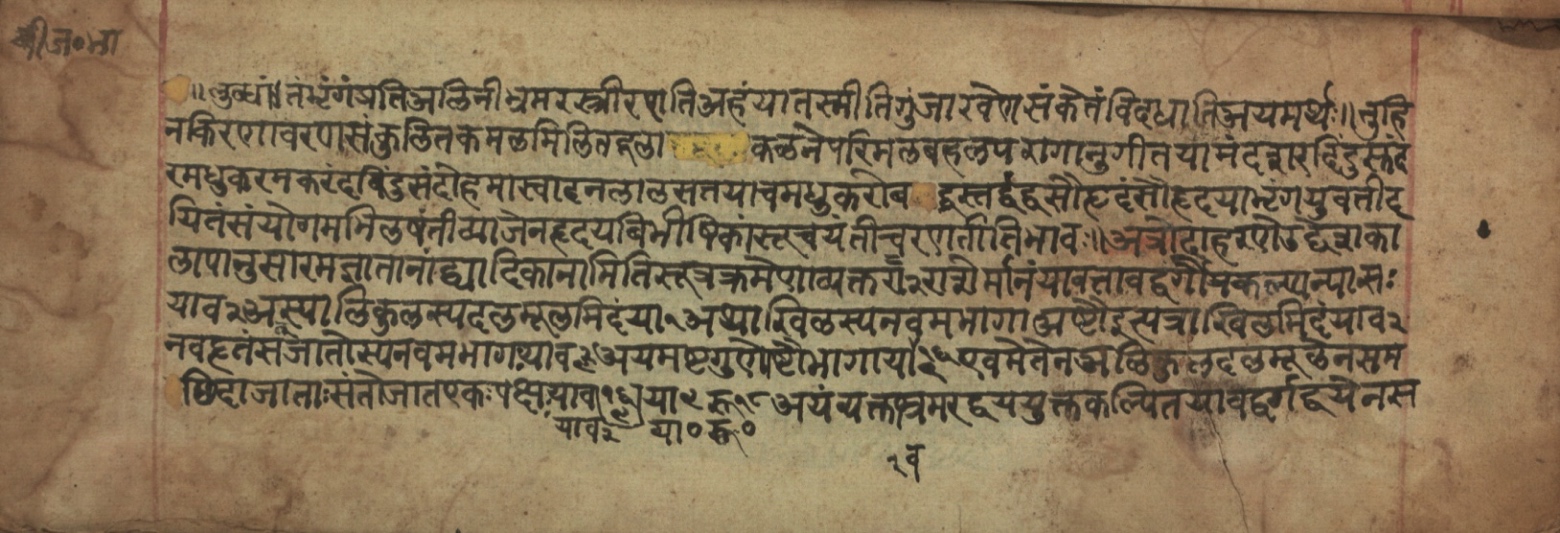 बीज॰भा
॥लुब्धं॥तंभृंगंप्रतिअलिनीभ्रमरस्त्रीरणतिअहंयातस्मीतिगुंजारवेणसंकेतंविदधातिअयमर्थः॥तुहि
नकिरणावरणसंकुलितकमलमिलितदला कलनेपरिमलबहलपरागानुगीतयामंदवारहिंदुस्तंद
रमधुकरमकरंदबिंदुसंदोहमास्वादनलालसतयाचमधुकरीव द्वस्तर्द्वद्वसौहृदंसौहृदयाभृंगयुवतीद
यितंसंयोगमभिलुषंतीव्याजेनहृदयबिभीषिकांस्तूचयंतीचरणतीतिभावः॥अत्रोदाहरणेउद्देशका
लापानुसारमज्ञातानांद्व्यादिकानामितिस्तूत्रक्रमेणाव्यक्तव२राशेर्मानंयावत्तावद्वर्गोत्रकल्प्यन्यासः
याव२अस्यालिकुलस्यदलमूलमिदंया१अथाखिलस्यनवमभागाअष्टौइत्यत्राखिलमिदंयाव२
नवहृतंसंजातोस्यनवमभागःयाव२अयमष्टगुणोष्टौभागायाव१६एवमेतेनअलिकुलदलमूलेनसम
छिदाजाताःसंतोजातएकःपक्षःयाव१६।या९रू१८अयंव्यक्तभ्रमरद्वययुक्तकल्पितयावद्वर्गद्वयेनस
याव२ या०रू०
२व